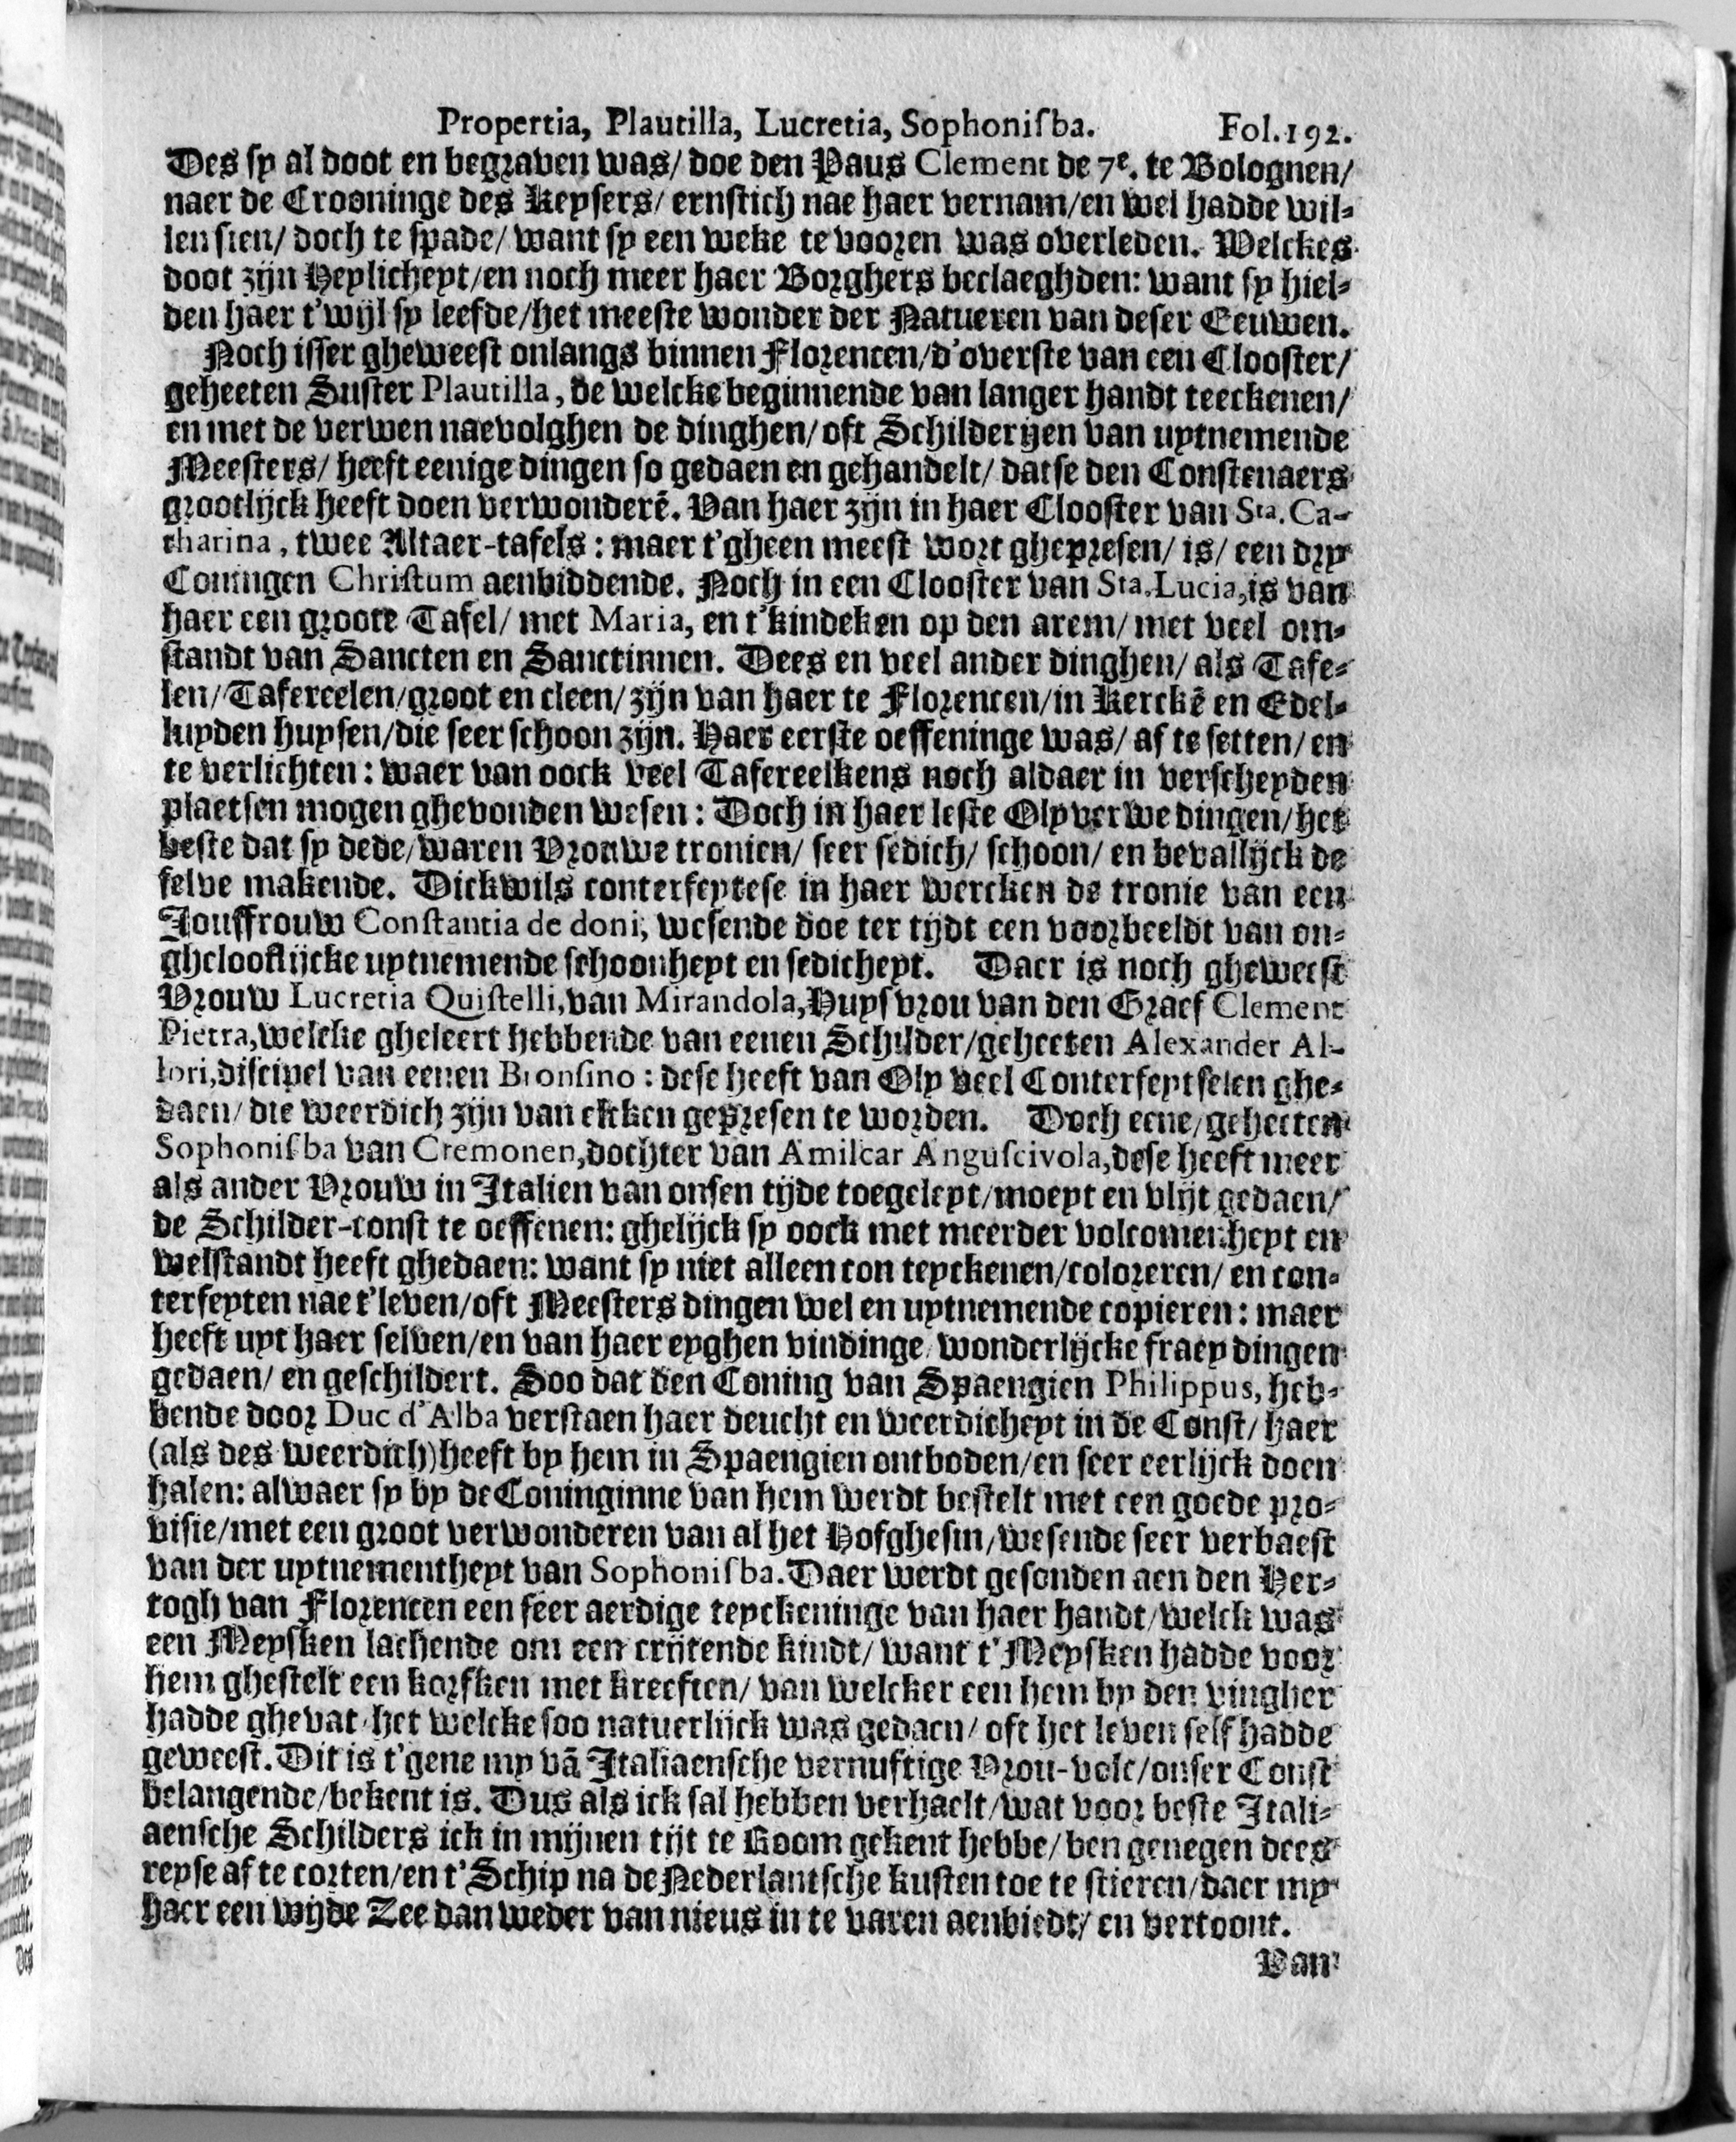 Propertia, Plautilla, Lucretia, Sophoniſba. Fol. 192.
Des sy al doot en begraven was/ doe den Paus Clement de 7e. te Bolognen/
naer de Crooninge des Keysers/ ernstich nae haer vernam/en wel hadde wil-
len sien/ doch te spade/ want sy een weke te vooren was overleden. Welckes
doot zijn Heylicheyt/en noch meer haer Borghers beclaeghden: want sy hiel-
den haer t'wijl sy leefde/het meeste wonder der Natueren van deser Eeuwen.
Noch isser gheweest onlangs binnen Florencen/d'overste van een Clooster/
geheeten Suster Plautilla, de welcke beginnende van langer handt teeckenen/
en met de verwen naevolghen de dinghen/ oft Schilderijen van uytnemende
Meesters/ heeft eenige dingen so gedaen en gehandelt/ datse den Constenaers
grootlijck heeft doen verwonderē. Van haer zijn in haer Clooster van Sta. Ca-
tharina, twee Altaer-tafels: maer t'gheen meest wort ghepresen/ is/ een dry
Coningen Chriſtum aenbiddende. Noch in een Clooster van Sta. Lucia, is van
haer een groote Tafel/ met Maria, en t'kindeken op den arem/ met veel om-
standt van Sancten en Sanctinnen. Dees en veel ander dinghen/ als Tafe-
len/ Tafereelen/ groot en cleen/ zijn van haer te Florencen/in Kerckē en Edel-
luyden huysen/die seer schoon zijn. Haer eerste oeffeninge was/ af te setten/ en
te verlichten: waer van oock veel Tafereelkens noch aldaer in verscheyden
plaetsen mogen ghevonden wesen: Doch in haer leste Olyverwe dingen/ het
beste dat sy dede/ waren Vrouwe tronien/ seer sedich/ schoon/ en bevallijck de
selve makende. Dickwils conterfeytese in haer wercken de tronie van een
Jouffrouw Conſtantia de doni, wesende doe ter tijdt een voorbeeldt van on-
ghelooflijcke uytnemende schoonheyt en sedicheyt. Daer is noch gheweest
Vrouw Lucretia Quiſtelli, van Mirandola, Huysvrou van den Graef Clement
Pietra, welcke gheleert hebbende van eenen Schilder/geheeten Alexander Al-
lori, discipel van eenen Bronſino: dese heeft van Oly veel Conterfeytselen ghe-
daen/ die weerdich zijn van elcken gepresen te worden. Doch eene/geheeten
Sophoniſba van Cremonen, dochter van Amilcar Anguſcivola, dese heeft meer
als ander Vrouw in Italien van onsen tijde toegeleyt/moeyt en vlijt gedaen/
de Schilder-const te oeffenen: ghelijck sy oock met meerder volcomenheyt en
welstandt heeft ghedaen: want sy niet alleen con teyckenen/coloreren/ en con-
terfeyten nae t'leven/oft Meesters dingen wel en uytnemende copieren: maer
heeft uyt haer selven/en van haer eyghen vindinge/ wonderlijcke fraey dingen
gedaen/ en geschildert. Soo dat den Coning van Spaengien Philippus, heb-
bende door Duc d'Alba verstaen haer deucht en weerdicheyt in de Const/ haer
(als des weerdich) heeft by hem in Spaengien ontboden/en seer eerlijck doen
halen: alwaer sy by de Coninginne van hem werdt bestelt met een goede pro-
visie/met een groot verwonderen van al het Hofghesin/wesende seer verbaest
van der uytnementheyt van Sophoniſba. Daer werdt gesonden aen den Her-
togh van Florencen een seer aerdige teyckeninge van haer handt/welck was
een Meysken lachende om een crijtende kindt/ want t'Meysken hadde voor
hem ghestelt een korfken met kreeften/ van welcker een hem by den vingher
hadde ghevat/ het welcke soo natuerlijck was gedaen/ oft het leven self hadde
geweest. Dit is t'gene my vā Italiaensche vernuftige Vrou-volc/onser Const
belangende/bekent is. Dus als ick sal hebben verhaelt/wat voor beste Itali-
aensche Schilders ick in mijnen tijt te Room gekent hebbe/ ben genegen dees
reyse af te corten/en t'Schip na de Nederlantsche kusten toe te stieren/daer my
haer een wijde Zee dan weder van nieus in te varen aenbiedt/ en vertoont.
Van
Des